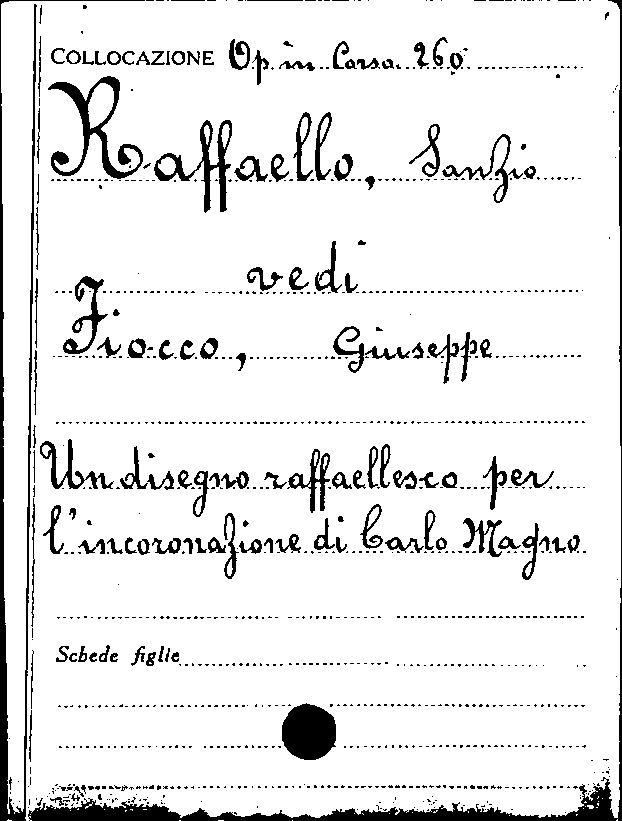 COLLOCAZIONE Op. in Corso. 260
Raffaello, Sanzio
vedi
Fiocco, Giuseppe
Un disegno raffaellesco per
l'incoronazione di Carlo Magno
Schede figlie